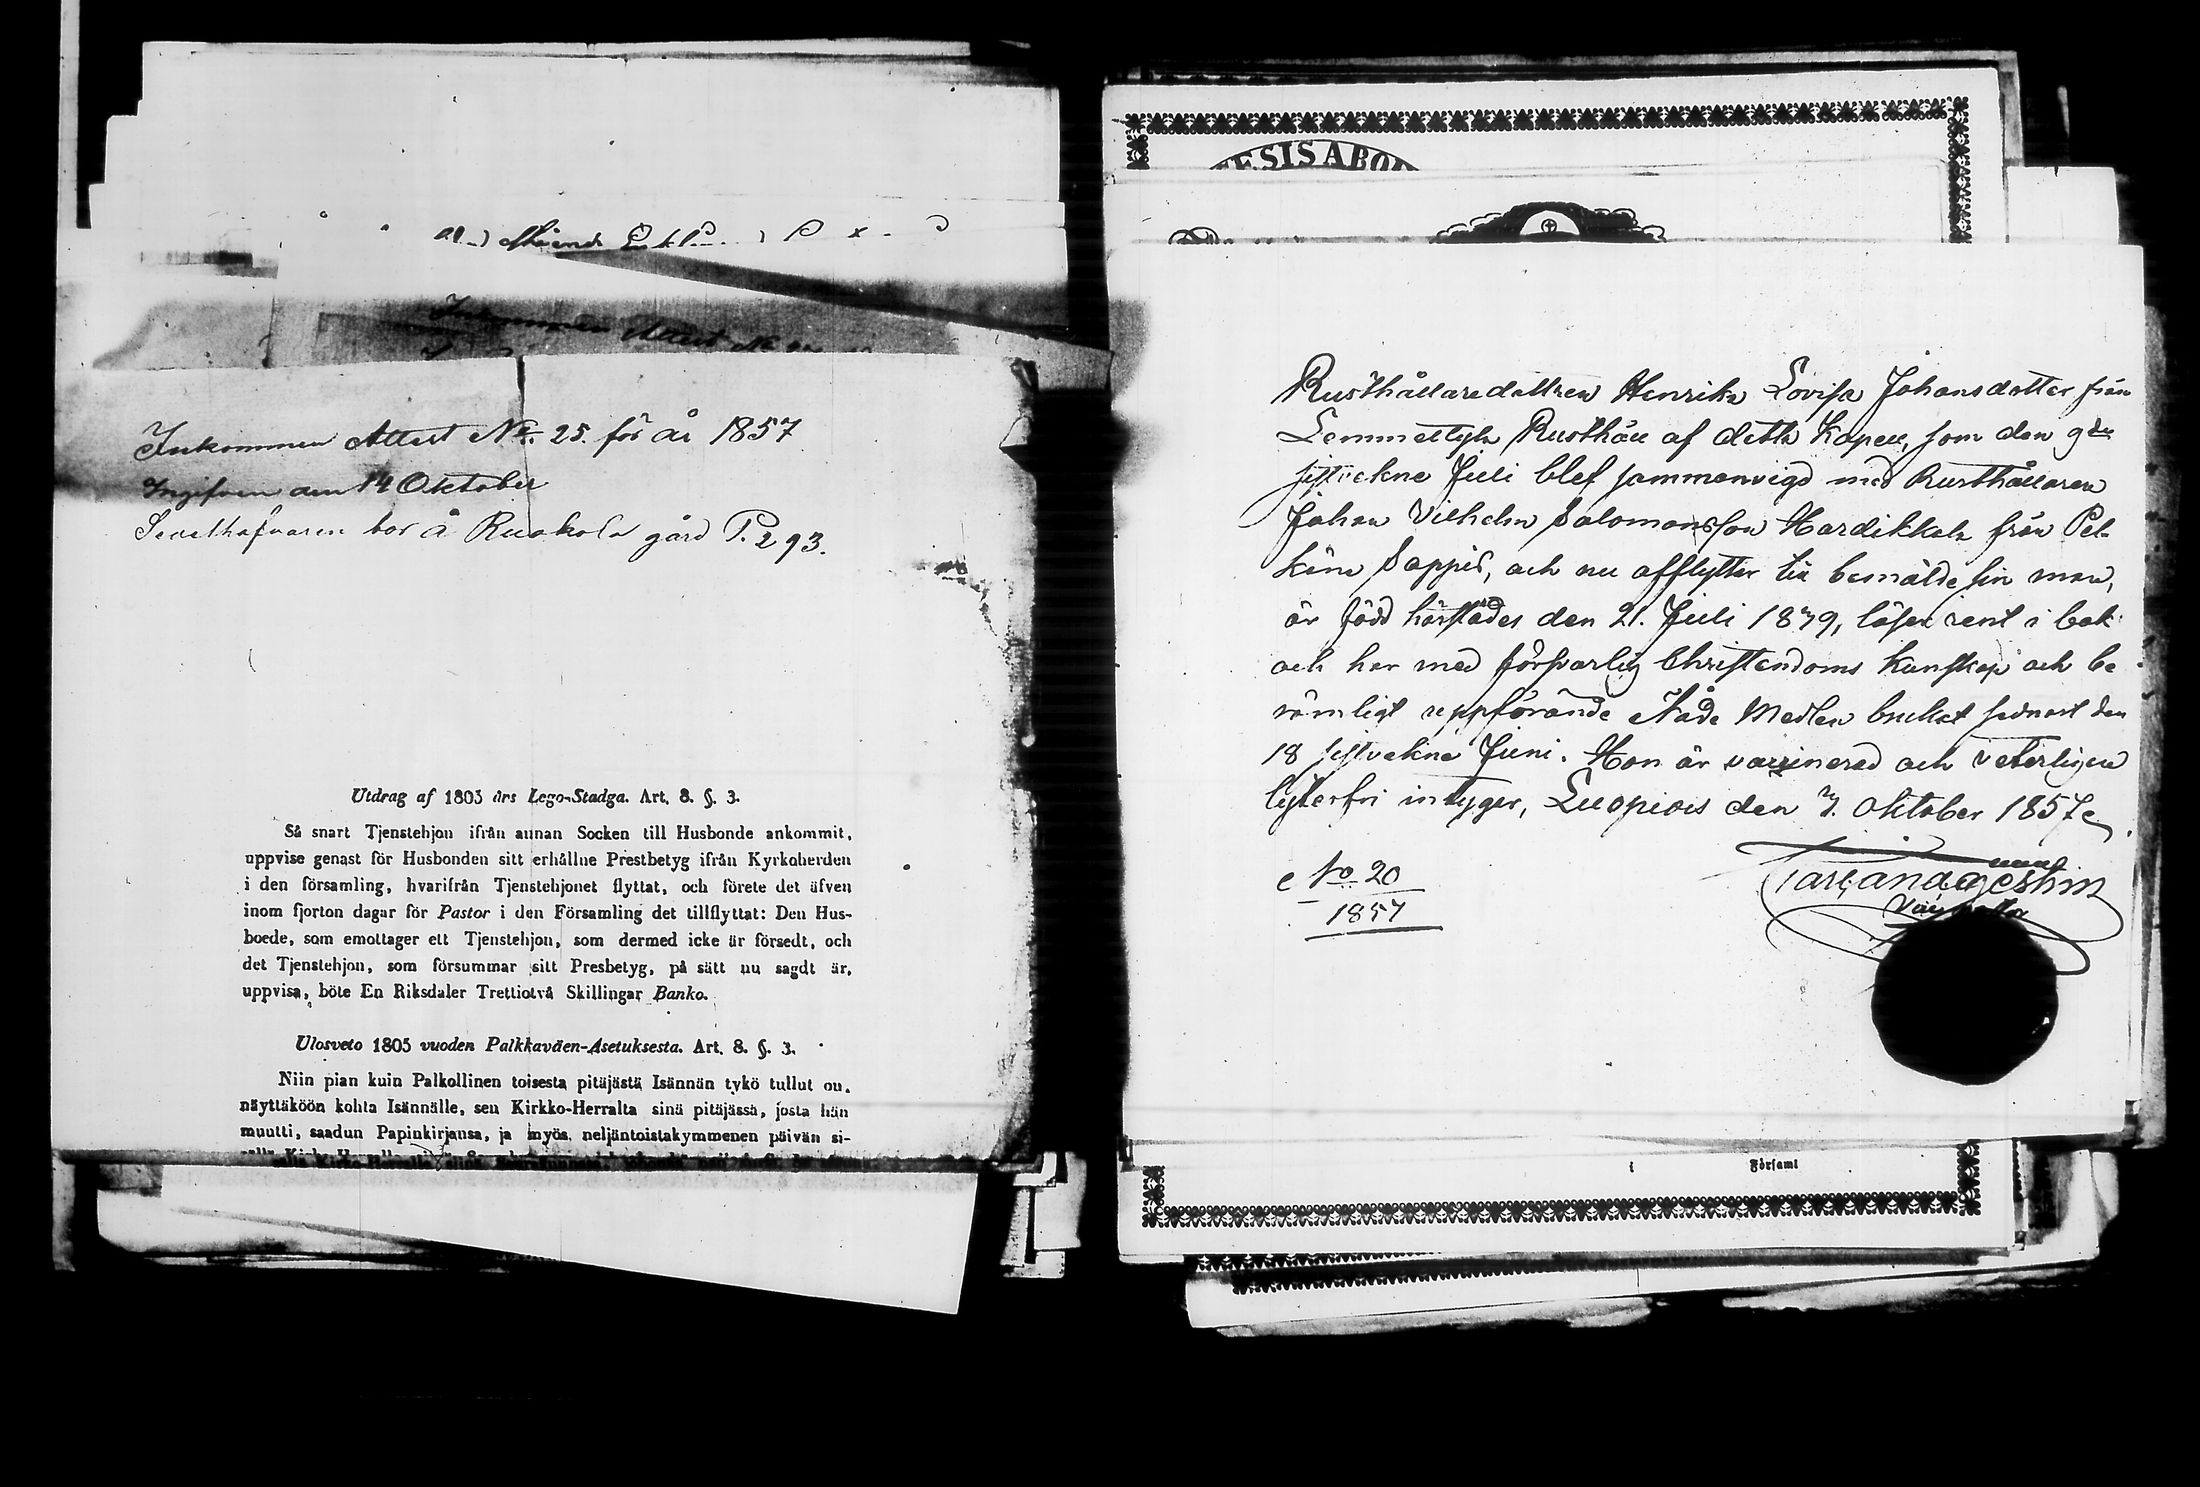 Inkommen Attest No. 25. för år 1857
Ingifven den 14 Oktober
Sedelhafvaren bor å Ruokola gård P. 293.
Utdrag af 1805 års Lego-Stadga. Art. 8. §. 3.
Så snart Tjenstehjon ifrån annan Socken till Husbonde ankommit,
uppvise genast för Husbonden sitt erhållne Prestbetyg ifrån Kyrkoherden
i den församling, hvarifrån Tjenstehjonet flyttat, och förete det äfven
inom fjorton dagar för Pastor i den Församling det tillflyttat: Den Hus-
boede, som emottager ett Tjenstehjon, som dermed icke är försedt, och
det Tjenstehjon, som försummar sitt Presbetyg, på sätt nu sagdt är,
uppvisa, böte En Riksdaler Trettiotvå Skillingar Banko.
Ulosveto 1805 vuoden Palkkaväen-Asetuksesta. Art. 8. §. 3.
Niin pian kuin Palkollinen toisesta pitäjästä Isännän tykö tullut on,
näyttäköön kohta Isännälle, sen Kirkko-Herralta sinä pitäjässä, josta hän
muutti, saadun Papinkirjansa, ja myös neljäntoistakymmenen päivän si-
ESIS ABO
Rusthållaredottren Henrika Lovisa Johansdotter från
Lemmettylä Rusthåll af detta Kapell, som den 9de
sistvekne Juli blef sammanvigd med Rusthållaren
Johan Vilhelm Salomonsson Hardikkala från Pel-
käne Sappis, och nu afflyttar till bemälde sin man,
är född härstädes den 21. Juli 1839, läser rent i bok
och har med försvarlig Christendoms kunskap och be
römligt uppförande Nåde Medlen brukat sednast den
18 sistvekne Juni. Hon är vaccinerad och veterligen
lyterfri intygar, Luopiois den 7. Oktober 1857
No 20
1857
i Församl